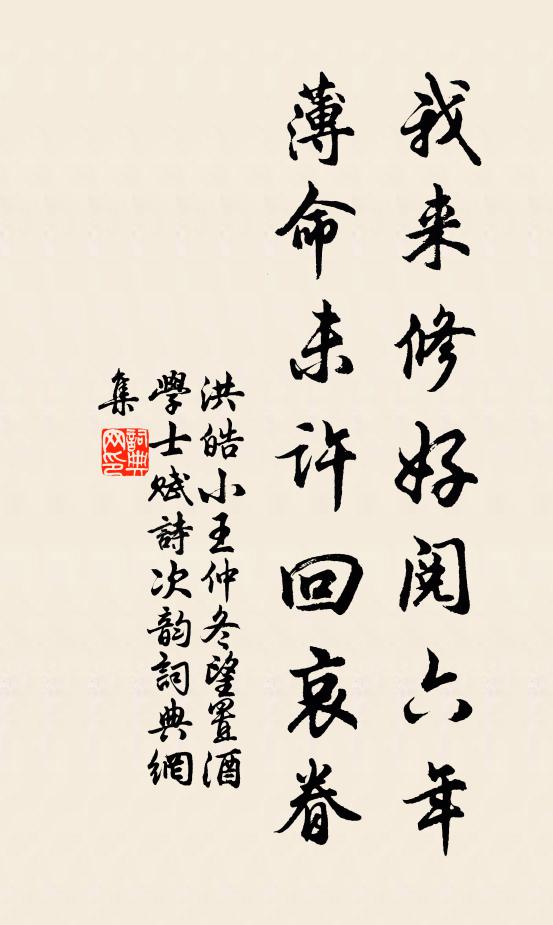 我来修好阅六年
薄命未许回哀眷
洪皓小王仲冬望置酒
學士赋詩次韵詞典網
集
詞典网印